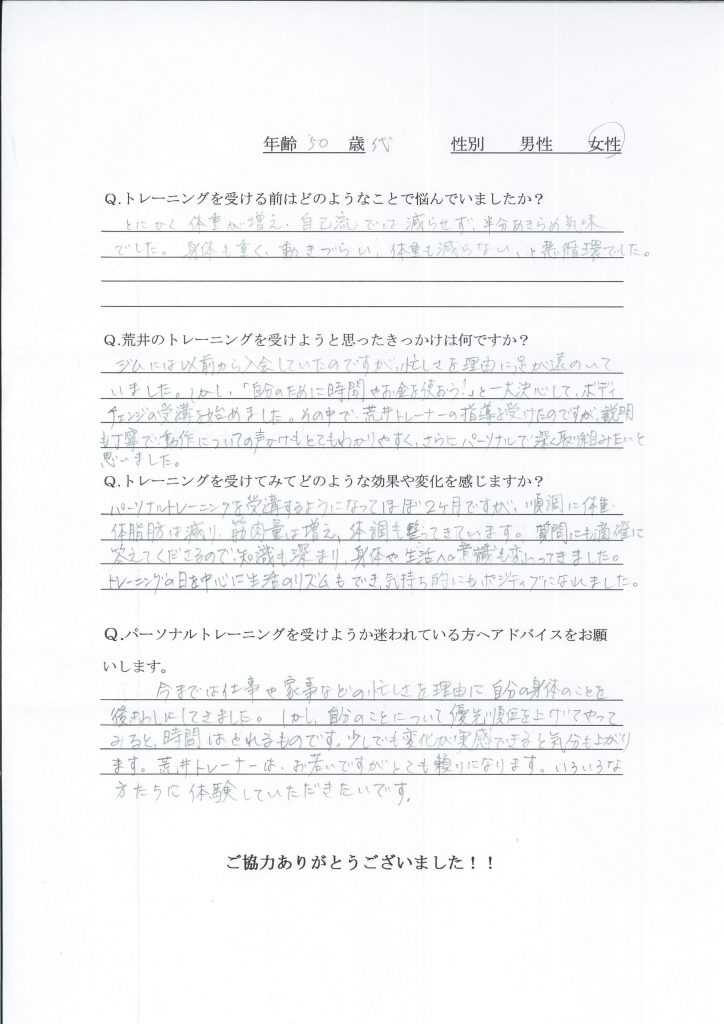 年齢 '50 歳代 性別 男性 女性
Q.トレーニングを受ける前はどのようなことで悩んでいましたか？
とにかく体重が増え、自己流では減らせず、半分あきらめ気味
でした。身体も重く、動きづらい、体重も減らない、と悪循環でした。
Q.荒井のトレーニングを受けようと思ったきっかけは何ですか？
ジムには以前から入会していたのですが、忙しさを理由に足が遠のいて
いました。しかし、「自分のために時間やお金を使おう！」と一大決心して、ボディ
チェンジの受講を始めました。その中で、荒井トレーナーの指導を受けたのですが、説明
も丁寧で動作についての声かけもとてもわかりやすく、さらにパーソナルで深く取り組みたいと
思いました。
Q.トレーニングを受けてみてどのような効果や変化を感じますか？
パーソナルトレーニングを受講するようになってほぼ2ヶ月ですが、順調に体重・
体脂肪は減り、筋肉量は増え、体調も整ってきています。質問にも適確に
答えてくださるので、知識も深まり、身体や生活への意識も変わってきました。
トレーニングの日を中心に生活のリズムもでき、気持ち的にもポジティブになれました。
Q.パーソナルトレーニングを受けようか迷われている方へアドバイスをお願
いします。
今までは仕事や家事などの忙しさを理由に、自分の身体のことを
後まわしにしてきました。しかし、自分のことについて優先順位を上げてやって
みると、時間はとれるものです。少しでも変化が実感できると気分も上がり
ます。荒井トレーナーは、お若いですがとても頼りになります。いろいろな
方たちに体験していただきたいです。
ご協力ありがとうございました！！